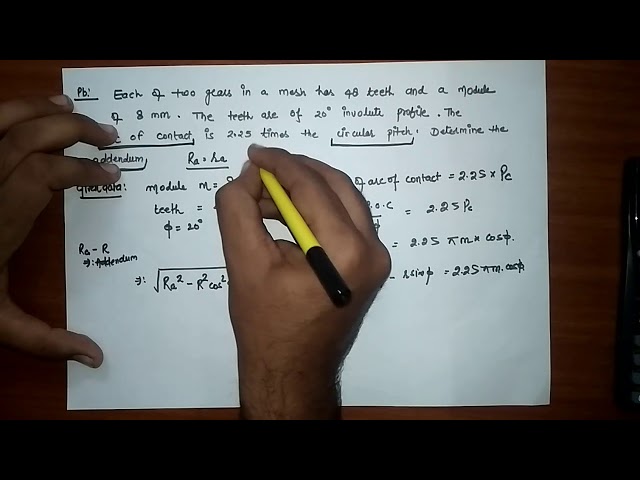 Pb:- Each of two gears in a mesh has 48 teeth and a module
of 8 mm. The teeth are of 20° involute profile. The
of contact is 2.25 times the circular pitch. Determine the
addendum Ra = ra
Given data: module m = of arc of contact = 2.25 × Pc
teeth = .O.C = 2.25 Pc
φ = 20°
= 2.25 πm × cosφ.
Ra - R
⇒ Addendum
⇒: √Ra² - R² cos² - r sinφ = 2.25 πm. cosφ